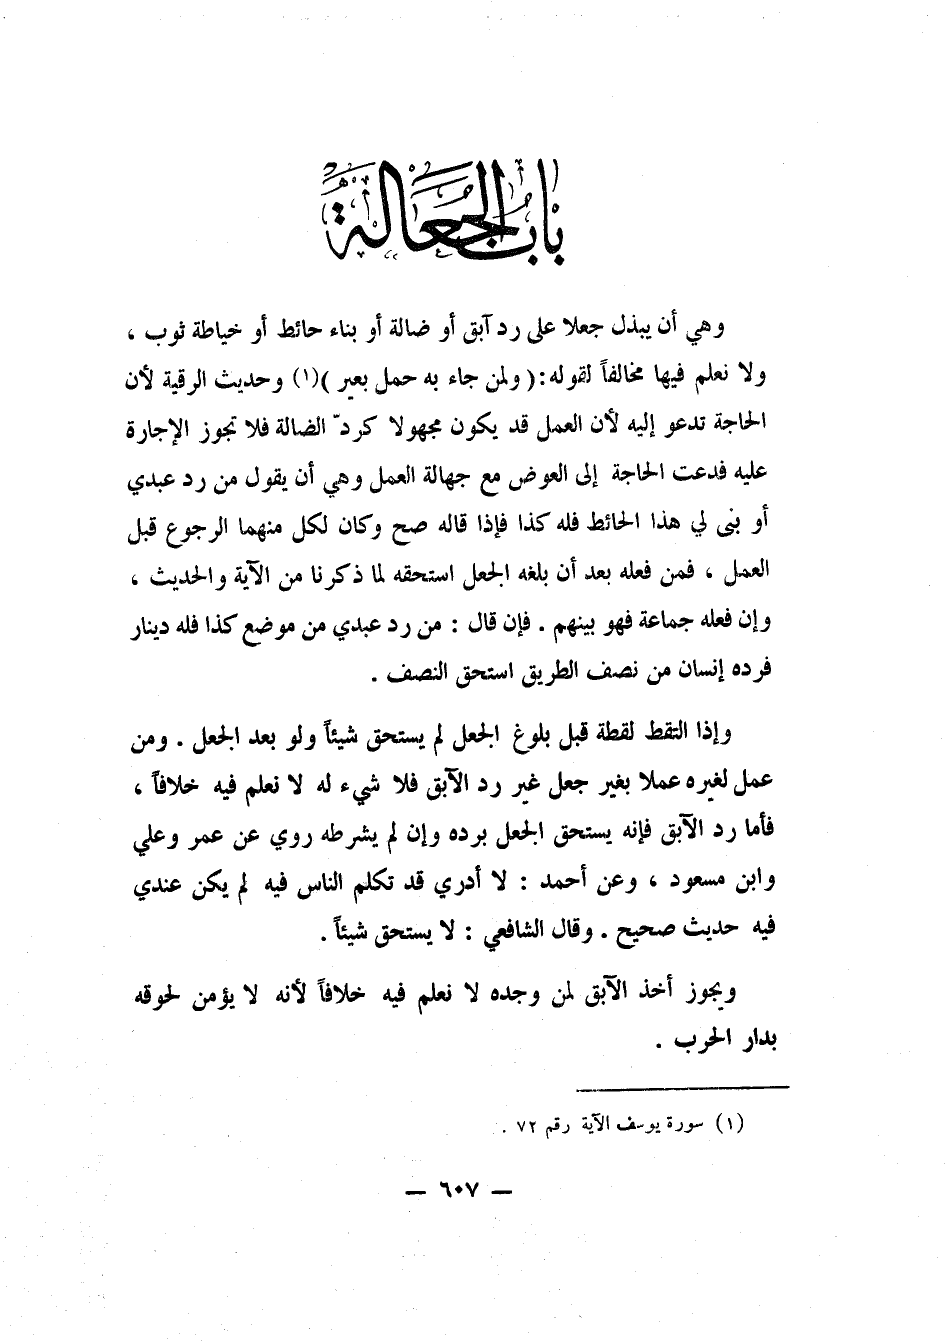 باب الجعالة
وهي أن يبذل جعلا على رد آبق أو ضالة أو بناء حائط أو خياطة ثوب ،
ولا نعلم فيها مخالفاً لقوله : ( ولمن جاء به حمل بعير )(١) وحديث الرقية لأن
الحاجة تدعو إليه لأن العمل قد يكون مجهولا كردّ الضالة فلا تجوز الإجارة
عليه فدعت الحاجة إلى العوض مع جهالة العمل وهي أن يقول من رد عبدي
أو بنى لي هذا الحائط فله كذا فإذا قاله صح وكان لكل منهما الرجوع قبل
العمل ، فمن فعله بعد أن بلغه الجعل استحقه لما ذكرنا من الآية والحديث ،
وإن فعله جماعة فهو بينهم . فإن قال : من رد عبدي من موضع كذا فله دينار
فرده إنسان من نصف الطريق استحق النصف .
وإذا التقط لقطة قبل بلوغ الجعل لم يستحق شيئاً ولو بعد الجعل . ومن
عمل لغيره عملا بغير جعل غير رد الآبق فلا شيء له لا نعلم فيه خلافاً ،
فأما رد الآبق فإنه يستحق الجعل برده وإن لم يشرطه روي عن عمر وعلي
وابن مسعود ، وعن أحمد : لا أدري قد تكلم الناس فيه لم يكن عندي
فيه حديث صحيح . وقال الشافعي : لا يستحق شيئاً .
ويجوز أخذ الآبق لمن وجده لا نعلم فيه خلافاً لأنه لا يؤمن لحوقه
بدار الحرب .
(١) سورة يوسف الآية رقم ٧٢ .
— ٦٠٧ —